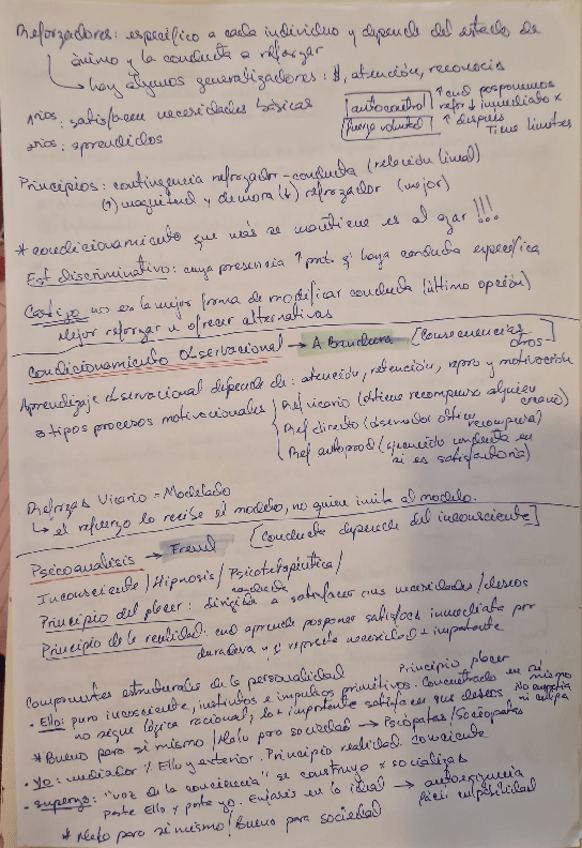 Reforzadores: específico a cada individuo y depende del estado de
ánimo y la conducta a reforzar
↳ hay algunos generalizadores: $, atención, reconocim
1rios: satisfacen necesidades básicas
2rios: aprendidos
autocontrol
fuerza voluntad
↑ cnd posponemos
refor ↓ inmediato x
↑ después
Tiene límites
Principios: contingencia reforzador-conducta (relación lineal)
(↑) magnitud y demora (↓) reforzador (mejor)
* condicionamiento que más se mantiene es al azar !!!
Est discriminativo: cuya presencia ↑ prob q' haya conducta específica
Castigo no es la mejor forma de modificar conducta (última opción)
Mejor reforzar u ofrecer alternativas
Condicionamiento observacional → A Bandura [Consecuencias otros]
Aprendizaje observacional depende de: atención, retención, repro y motivación
3 tipos procesos motivacionales
Ref vicario (obtiene recompensa alguien cercano)
Ref directo (observador obtiene recompensa)
Ref autoprod (ejecución conducta en sí es satisfactoria)
Reforzas Vicario = Modelado
↳ el refuerzo lo recibe el modelo, no quien imita al modelo.
Psicoanálisis → Freud [Conducta depende del inconsciente]
Inconsciente / Hipnosis / Psicoterapéutica /
Principio del placer: conducta dirigida a satisfacer sus necesidades/deseos
Principio de la realidad: cnd aprende posponer satisfacc inmediata por
duradera y q' represente necesidad + importante
Componentes estructurales de la personalidad
Principio placer
• Ello: puro incosciente, instintos e impulsos primitivos. Concentrado en sí mismo
no sigue lógica racional, lo + importante satisfacer sus deseos
No empatía
ni culpa
* Bueno para sí mismo / Malo para sociedad → Psicópatas/Sociópatas
• Yo: mediador % Ello y exterior. Principio realidad. Conciente
• Superyo: "voz de la conciencia" se construye x socializas
parte Ello y parte yo. Enfasis en lo ideal → autoexigencia
* Malo para sí mismo / Bueno para sociedad